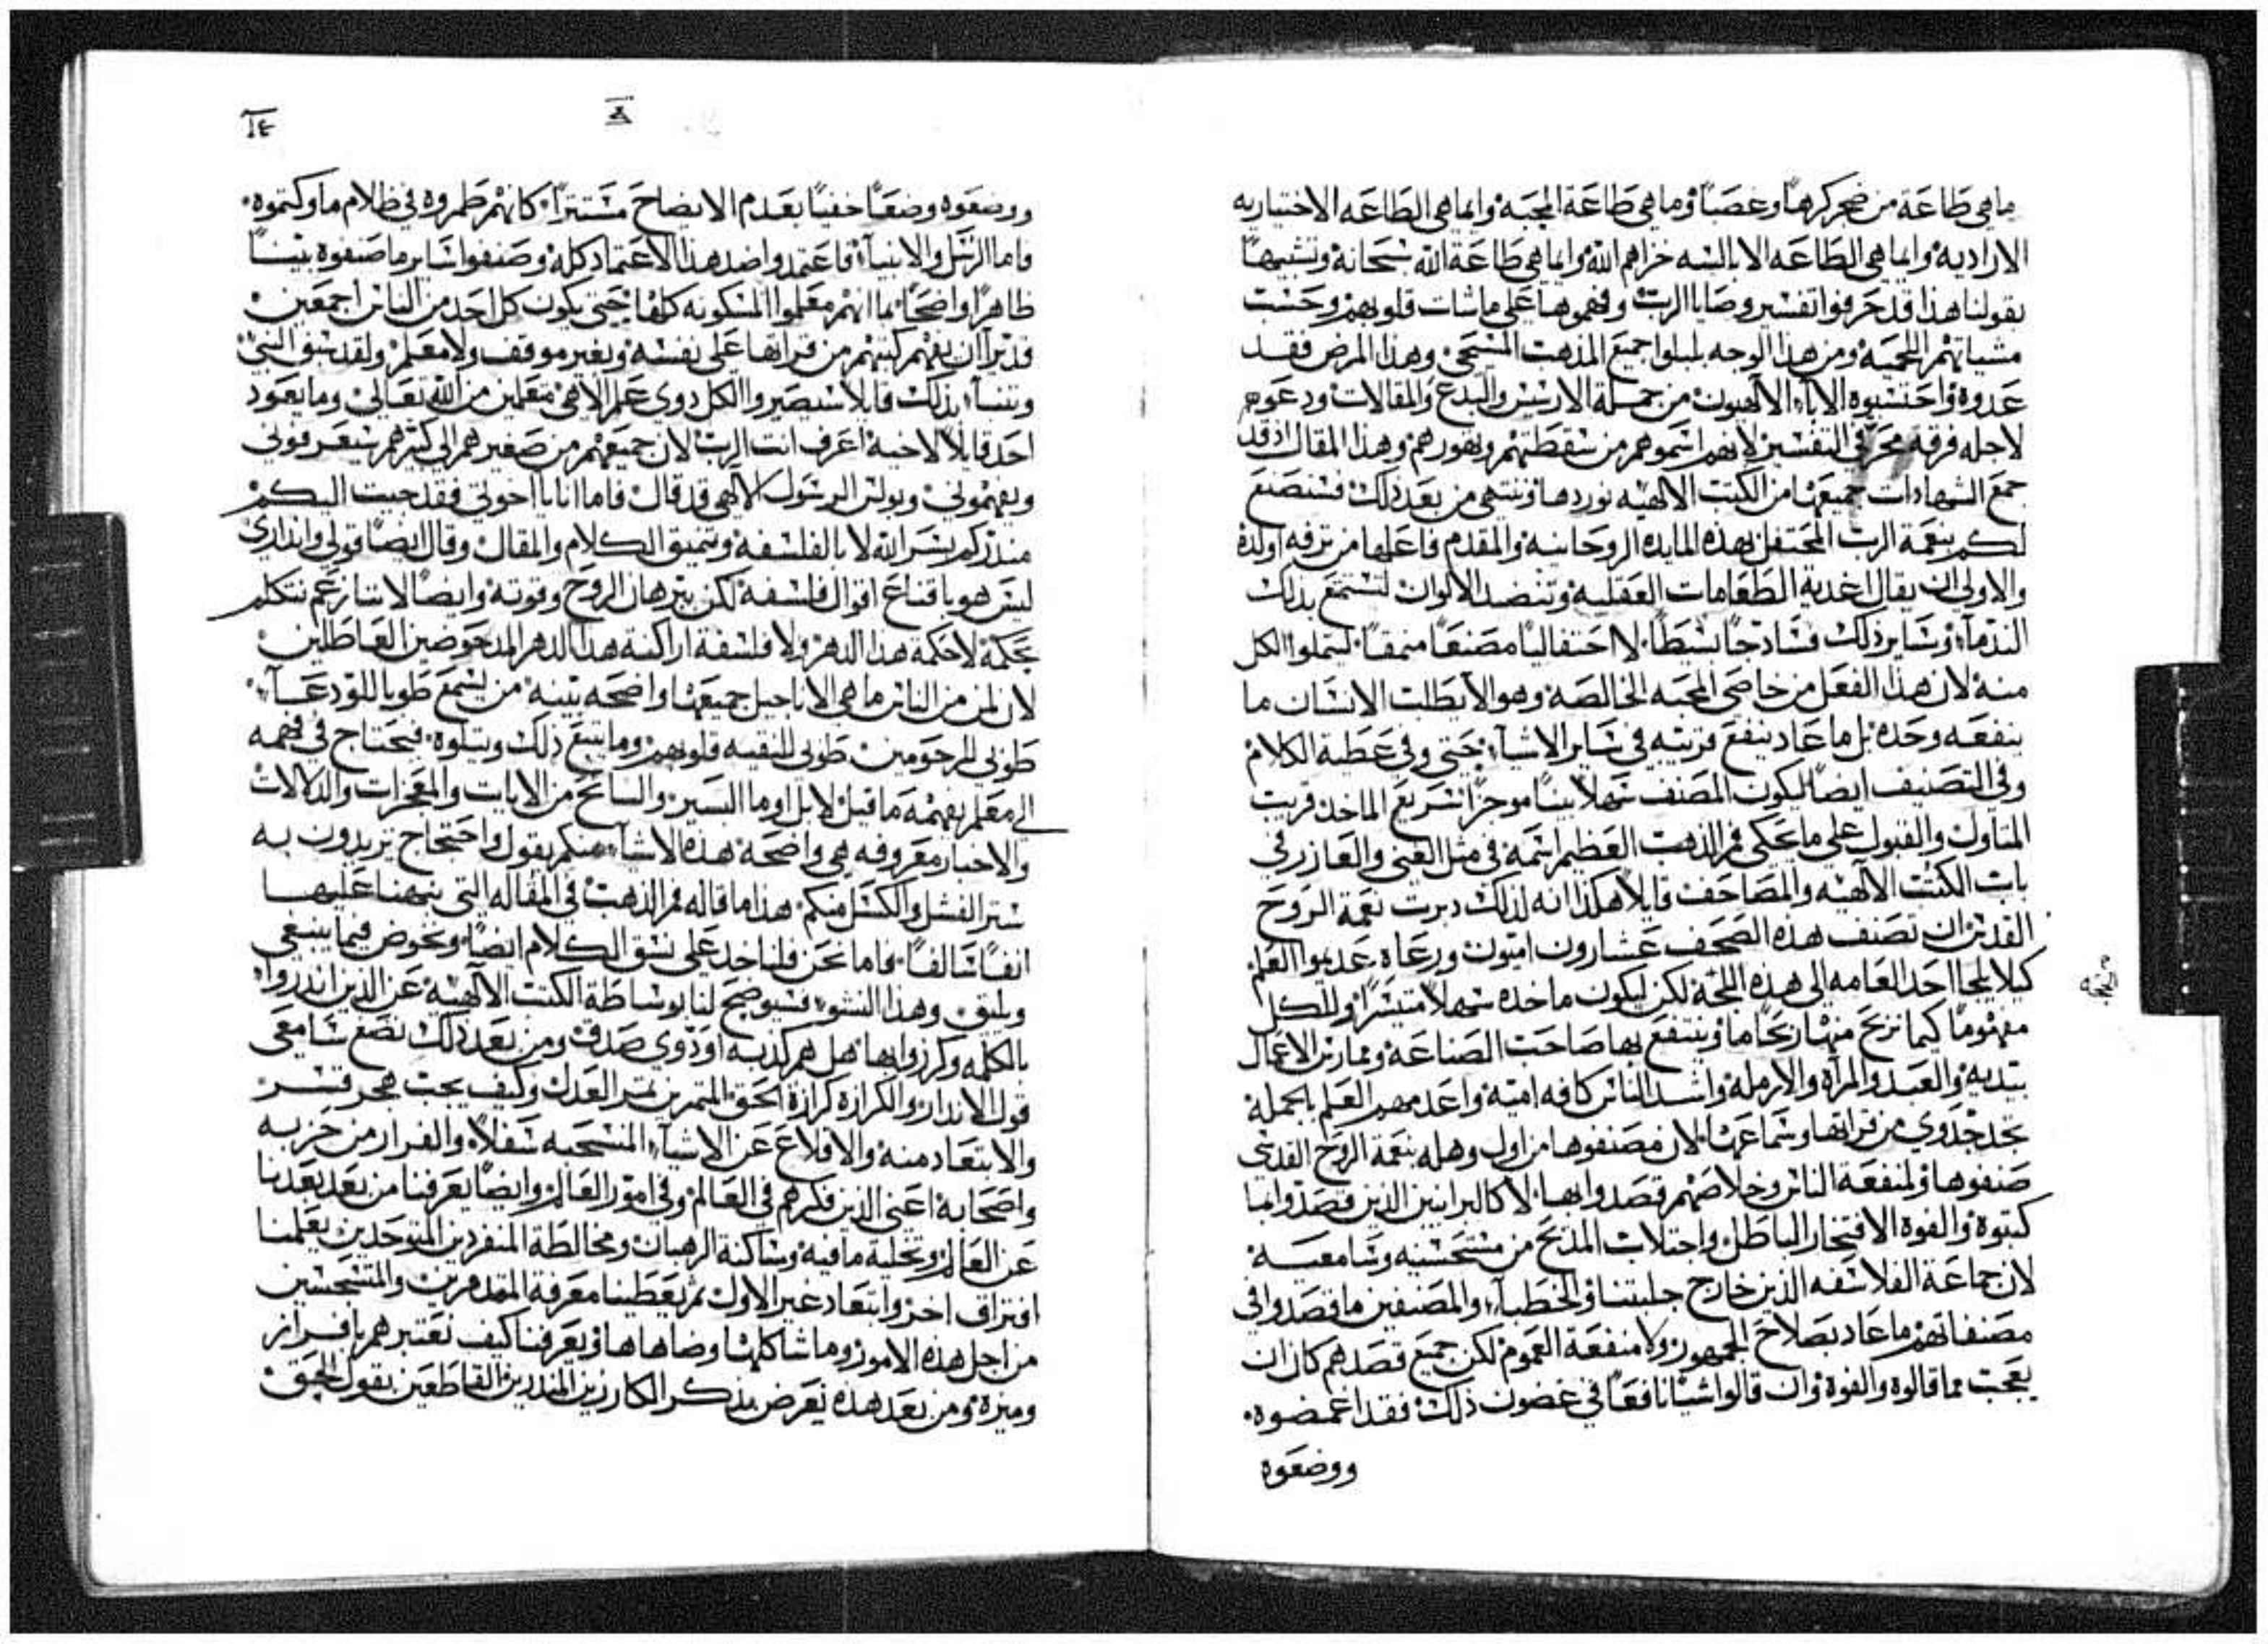 ماهي طاعة من ضجر كرهاً وغصباً وماهي طاعة المحبه وانما هي الطاعه الاختياريه
الاراديه وانما هي الطاعه الابالسه خزاهم الله وانما هي طاعة الله سبحانه وتشبيهاً
بقولنا هذا قد حرفوا تفسير وصايا الرب وفهموها على ماشات قلوبهم وحسب
مشياتهم اللحميه ومن هذا الوجه بلبلوا جميع المذهب المسيحي وهذا المرض فقد
عدوه واحتسبوه الاباء الالاهيون من جملة الارسيس والبدع والمقالات ودعوهم
لاجله فرقة محرفي التفسير لانهم اسموهم من سقطتهم وتهورهم وهذا المقال اذ قد
جمع الشهادات جميعها من الكتب الالاهيه نوردها وننتهي من بعد ذلك فسنصنع
لكم بنعمة الرب المحتفل بهذه المايده الروحانيه والمقدم فاعلها من ترفه ولذة
والاولى ان يقال اغدية الطعامات العقليه وتنضد الالوان لتستمتع بذلك
الندماء وساير ذلك فسادجاً بسيطاً لا احتفالياً مصنعاً منمقاً ليتملوا الكل
منه لان هذا الفعل من خاصي المحبه الخالصه وهو الا يطلب الانسان ما
ينفعه وحده بل ما عاد ينفع قريبه في ساير الاشيا حتى وفي عطية الكلام
وفي التصنيف ايضاً ليكون المصنف سهلاً بيناً موجزاً سريع الماخذ قريب
المناول والقبول على ما يحكى فم الذهب العظيم اسمه في مثل الغني والعازر في
باب الكتب الالاهيه والمصاحف قايلاً هكذا انه لذلك دبرت نعمة الروح
القدس ان تصنف هذه الصحف عشارون اميون ورعاه عديموا العلم
كيلا يلجا احد العامه الى هذه اللجة لكن ليكون ماخذه سهلاً متيسراً وللكل
مفهوماً كيما نربح منها ربحاً ما وينتفع بها صاحب الصناعه وممارس الاعمال
بيديه والعبد والمراه والارمله واشد الناس كافه اميه واعدمهم العلم بالجمله
نجد جدوى من قراتها وسماعها لان مصنفوها من اول وهله بنعمة الروح القدس
صنفوها ولمنفعة الناس وخلاصهم قصدوا بها لا كالبرانيين الذين قصدوا بما
كتبوه والفوه الافتخار الباطل واجتلاب المديح من مستحسنيه وسامعيه
لان جماعة الفلاسفه الذين خارج جلبتنا والخطباء والمصنفين ما قصدوا في
مصنفاتهم ما عاد بصلاح الجمهور ولا منفعة العموم لكن جميع قصدهم كان ان
يعجب مما قالوه والفوه وان قالوا شيا نافعاً في غضون ذلك فقد اغمضوه
ووضعوه
١٤
ووضعوه وضعاً خفياً بعدم الايضاح مستتراً كانهم طمروه في ظلام ما وكتموه
فاما الرسل والانبياء فاعتمدوا ضد هذا الاعتماد كله وصنفوا ساير ما صنفوه بيناً
ظاهراً واضحاً بما انهم معلموا المسكونه كلها حتى يكون كل احد من الناس اجمعين
قديراً ان يفهم كتبهم من قراتها على نفسه وبغير موقف ولا معلم ولقد سبق النبي
وتنبا بذلك قايلاً سيصيروا الكل دوي علم الاهي متعلمين من الله تعالى وما يعود
احد قايلاً لاخيه اعرف انت الرب لان جميعهم من صغيرهم الى كبيرهم سيعرفوني
ويفهموني وبولس الرسول الالهي قد قال فاما انا يا اخوتي فقد جيت اليكم
منذركم بسر الله لا بالفلسفه وتنميق الكلام والمقال وقال ايضاً قولي وانذاري
ليس هو باقناع اقوال فلسفه لكن ببرهان الروح وقوته وايضاً لاننا نتكلم
بحكمة لاحكمة هذا الدهر ولا فلسفة اراكنة هذا الدهر المدحوضين العاطلين
لان لمن من الناس ما هي الاناجيل جميعها واضحه بينه من يسمع طوبا للودعاء
طوبى للرحومين طوبى للنقيه قلوبهم وما يتبع ذلك ويتلوه فيحتاج في فهمه
الى معلم يفهمه ما قيل لا بل اوما اليسير والسانح من الايات والمعجزات والدلالات
والاخبار معروفه هي واضحة هذه الاشياء منكم بقول واحتجاج تريدون به
ستر الفشل والكسل منكم هذا ما قاله فم الذهب في المقاله التي نبهنا عليها
انفاً سالفاً فاما نحن فلناخد على نسق الكلام ايضاً ونخوض فيما ينبغي
ويليق وهذا النشو فسيوضح لنا بوساطة الكتب الالاهيه عن الذين انذروا
بالكلمه وكرزوا بها هل هم كدبه او ذوي صدق ومن بعد ذلك نضع سامعى
قول الاندار والكرازه كرازة الحق المتمرين بتمر العدل وكيف يجب هجر
والابتعاد منه والاقلاع عن الاشياء المنسحبه سفلاً والفرار من حزبه
واصحابه اعني الذين فكرهم في العالم وفي امور العالم وايضاً يعرفنا من بعد بعدنا
عن العالم وتخلية ما فيه وساكنة الرهبان ومخالطة المنفردين المتوحدين يعلمنا
افتراق اخر وابتعاد غير الاول ثم يعطينا معرفة المتدهرين والمتسحسين
من اجل هذه الامور وما شاكلها وضاهاها ويعرفنا كيف نعتبرهم بافراز
وميزه ومن بعد هذه نعرض بذكر الكارزين المنذرين القاطعين بقول الحق